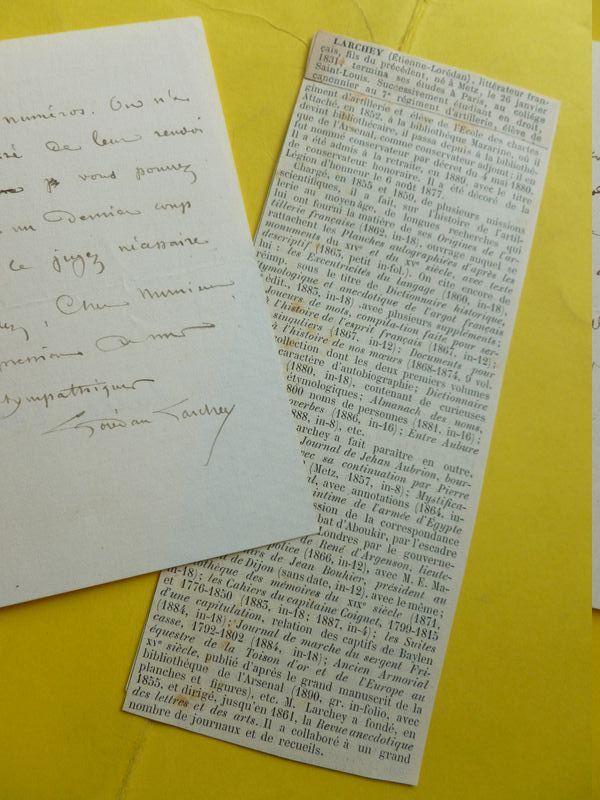 numéros. On n'a
de leur renvoi
vous pouvez
un dernier coup
le jugez nécessaire
, Cher Monsieur
sympathiques
Lorédan Larchey
LARCHEY (Étienne-Lorédan), littérateur fran-
çais, fils du précédent, né à Metz, le 26 janvier
1831, termina ses études à Paris, au collège
Saint-Louis. Successivement étudiant en droit,
canonnier au 2e régiment d'artillerie, élève de
giment d'artillerie et élève de l'École des chartes
Attaché, en 1852, à la bibliothèque Mazarine, où il
devint bibliothécaire, il passa depuis à la bibliothè-
que de l'Arsenal, comme conservateur adjoint; il en
fut nommé conservateur par décret du 4 mai 1880.
Il a été admis à la retraite, en 1889, avec le titre
de conservateur honoraire. Il a été décoré de la
Légion d'honneur le 6 août 1877.
Chargé, en 1855 et 1859, de plusieurs missions
scientifiques, il a fait, sur l'histoire de l'artil-
lerie au moyen âge, de longues recherches qui
lui ont fourni la matière de ses Origines de l'ar-
tillerie française (1862, in-18), ouvrage auquel se
rattachent les Planches autographiées d'après les
monuments du XIVe et du XVe siècle, avec texte
descriptif (1863, petit in-fol.). On cite encore de
lui : les Excentricités du langage (1860, in-18;
réimp. sous le titre de Dictionnaire historique,
étymologique et anecdotique de l'argot français
édit., 1885, in-18), avec plusieurs suppléments;
Joueurs de mots, compilation faite pour ser-
à l'histoire de l'esprit français (1867, in-12);
singuliers (1867, in-12); Documents pour
à l'histoire de nos mœurs (1868-1874, 9 vol.
collection dont les deux premiers volumes
caractère d'autobiographie; Dictionnaire
(1880, in-18), contenant de curieuses
étymologiques; Almanach des noms,
800 noms de personnes (1881, in-16);
overbes (1886, in-16); Entre Aubure
888, in-8), etc.
archey a fait paraître en outre,
Journal de Jehan Aubrion, bour-
vec sa continuation par Pierre
(Metz, 1857, in-8); Mystifica-
al, avec annotations (1864, in-
intime de l'armée d'Égypte
ssion de la correspondance
bat d'Aboukir, par l'escadre
Londres par le gouverne-
de René d'Argenson, lieute-
police (1866, in-12), avec M. E. Ma-
rs de Jean Bouhier, président au
de Dijon (sans date, in-12), avec le même;
othèque des mémoires du XIXe siècle (1871,
in-18); les Cahiers du capitaine Coignet, 1799-1815
et 1776-1850 (1883, in-18; 1887, in-4); les Suites
d'une capitulation, relation des captifs de Baylen
(1884, in-18); Journal de marche du sergent Fri-
casse, 1792-1802 (1884, in-18); Ancien Armorial
équestre de la Toison d'or et de l'Europe au
XVe siècle, publié d'après le grand manuscrit de la
bibliothèque de l'Arsenal (1890, gr. in-folio, avec
planches et figures), etc. M. Larchey a fondé, en
1855, et dirigé, jusqu'en 1861, la Revue anecdotique
des lettres et des arts. Il a collaboré à un grand
nombre de journaux et de recueils.